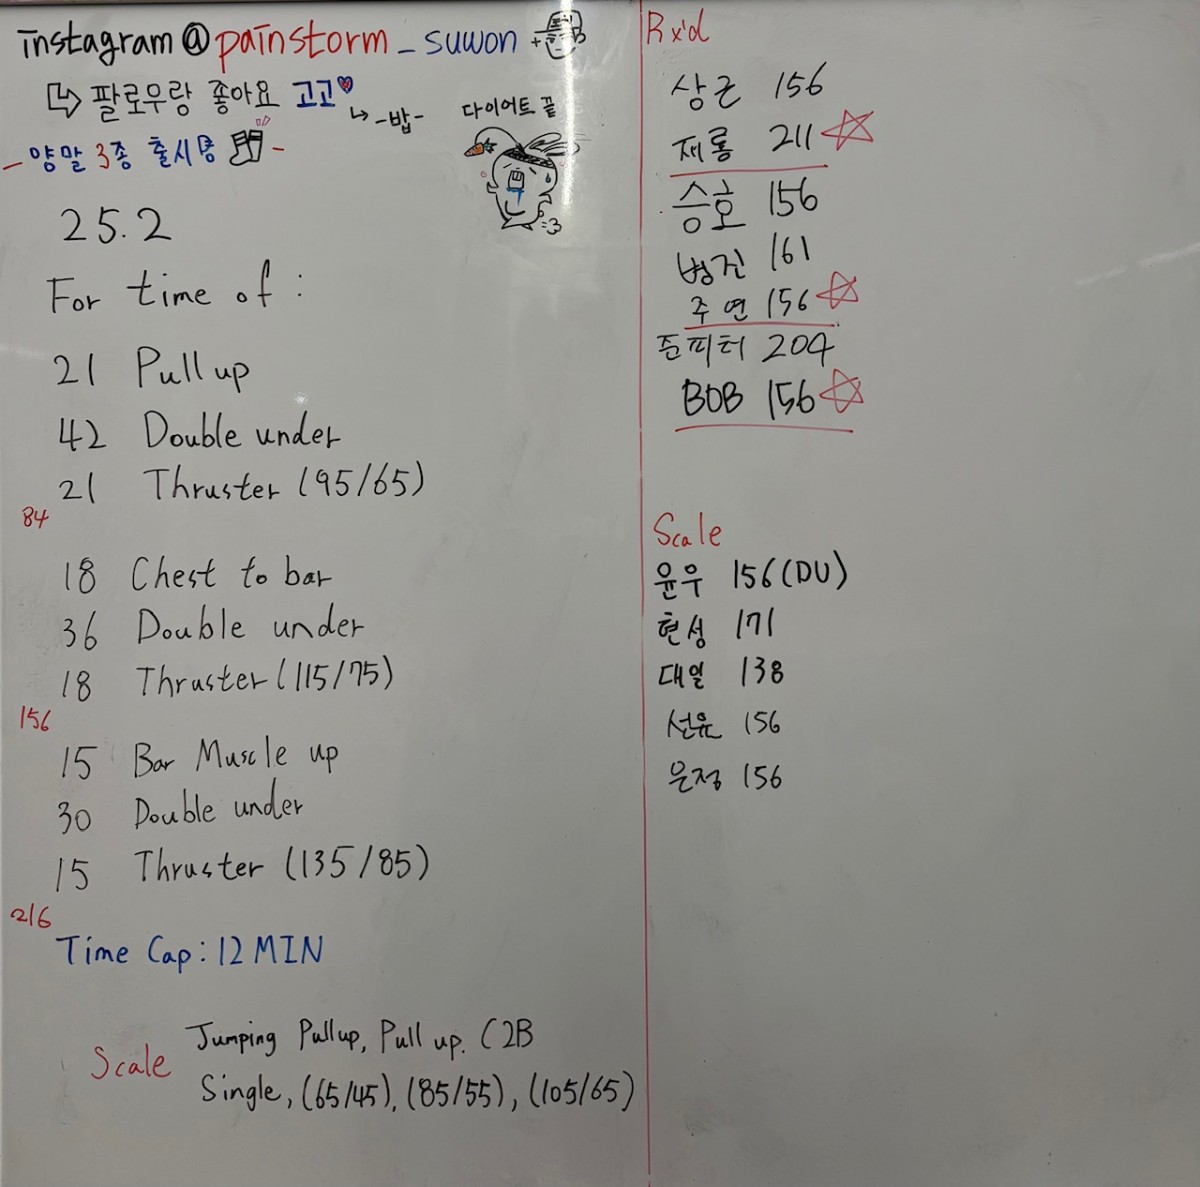 instagram@painstorm_suwon
팔로우랑 좋아요 고고
-밥-
다이어트 끝
- 양말 3종 출시중 -
25.2
For time of :
21 Pull up
42 Double under
21 Thruster (95/65)
84
18 Chest to bar
36 Double under
18 Thruster (115/75)
156
15 Bar Muscle up
30 Double under
15 Thruster (135/85)
216
Time Cap: 12 MIN
Scale
Jumping Pullup, Pull up. C2B
Single, (65/45), (85/55), (105/65)
Rx'd
상근 156
제롱 211
승호 156
병진 161
주연 156
준피터 204
BOB 156
Scale
윤우 156(DU)
현성 171
대일 138
선윤 156
은정 156